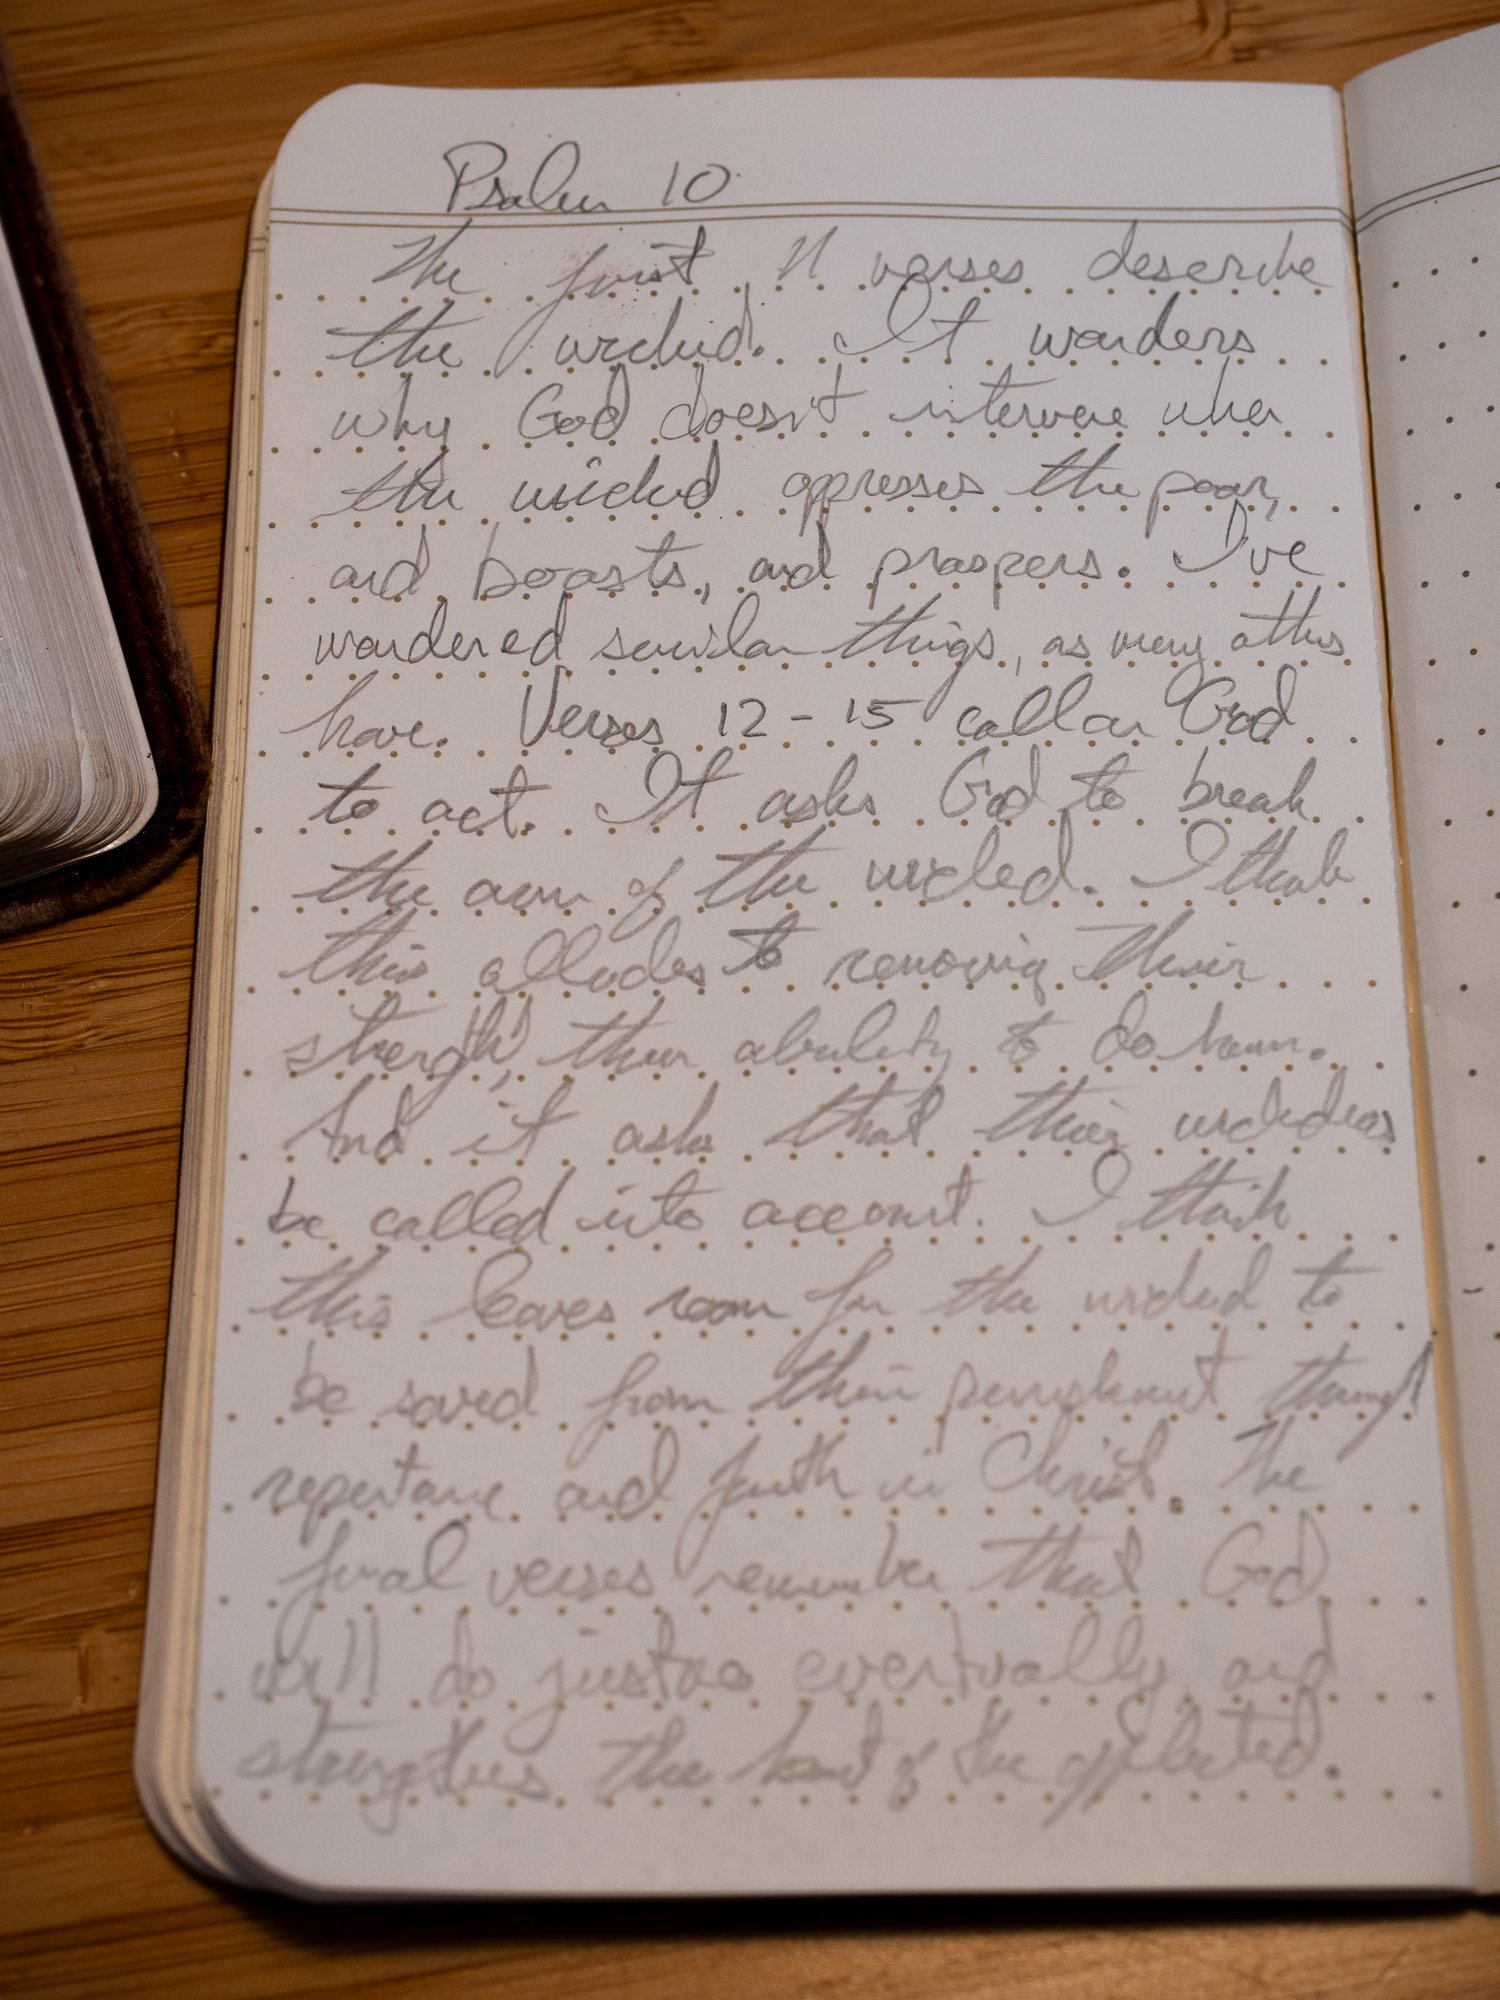 Psalm 10
The first 11 verses describe
the wicked. It wonders
why God doesn't intervene when
the wicked oppresses the poor,
and boasts, and prospers. I've
wondered similar things, as many others
have. Verses 12-15 call on God
to act. It asks God to break
the arm of the wicked. I think
this alludes to removing their
strength, their ability to do harm.
And it asks that their wickedness
be called into account. I think
this leaves room for the wicked to
be saved from their punishment through
repentance and faith in Christ. The
final verses remember that God
will do justice eventually, and
strengthens the heart of the afflicted.